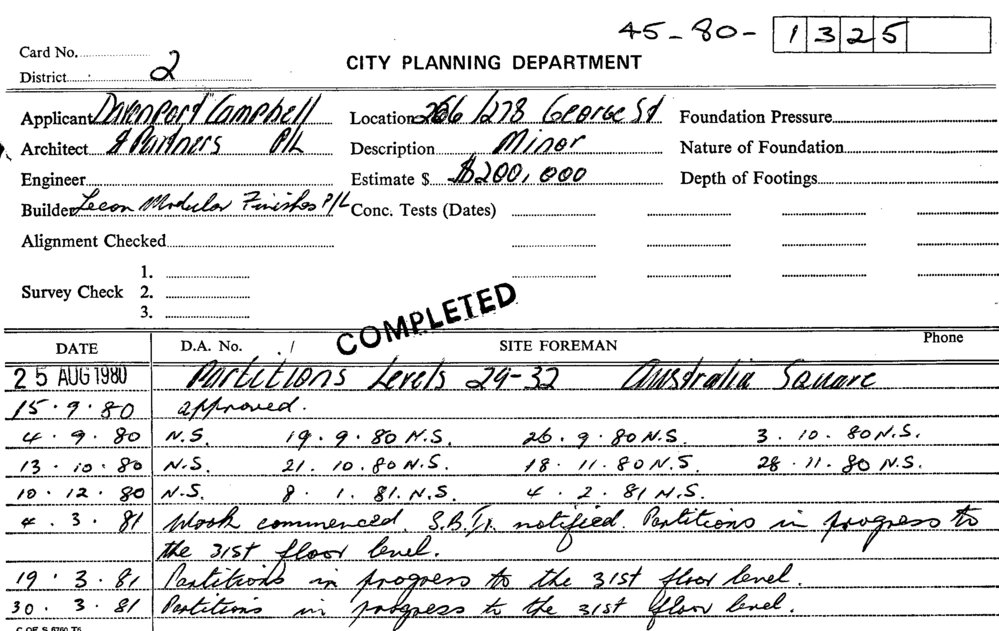 45-80- 1325
Card No.
District 2
CITY PLANNING DEPARTMENT
Applicant Davenport Campbell Location 266/278 George St Foundation Pressure
Architect & Partners P/L Description Minor Nature of Foundation
Engineer Estimate $ $200,000 Depth of Footings
Builder Modular Finishes P/L Conc. Tests (Dates)
Alignment Checked
1.
Survey Check 2.
3.
COMPLETED
DATE D.A. No. / SITE FOREMAN Phone
25 AUG 1980 Partitions Levels 29-32 Australia Square
15.9.80 approved.
4.9.80 N.S. 19.9.80 N.S. 26.9.80 N.S. 3.10.80 N.S.
13.10.80 N.S. 21.10.80 N.S. 18.11.80 N.S. 28.11.80 N.S.
10.12.80 N.S. 8.1.81. N.S. 4.2.81 N.S.
4.3.81 Work commenced. notified. Partitions in progress to
the 31st floor level.
19.3.81 Partitions in progress to the 31st floor level.
30.3.81 Partitions in progress to the 31st floor level.